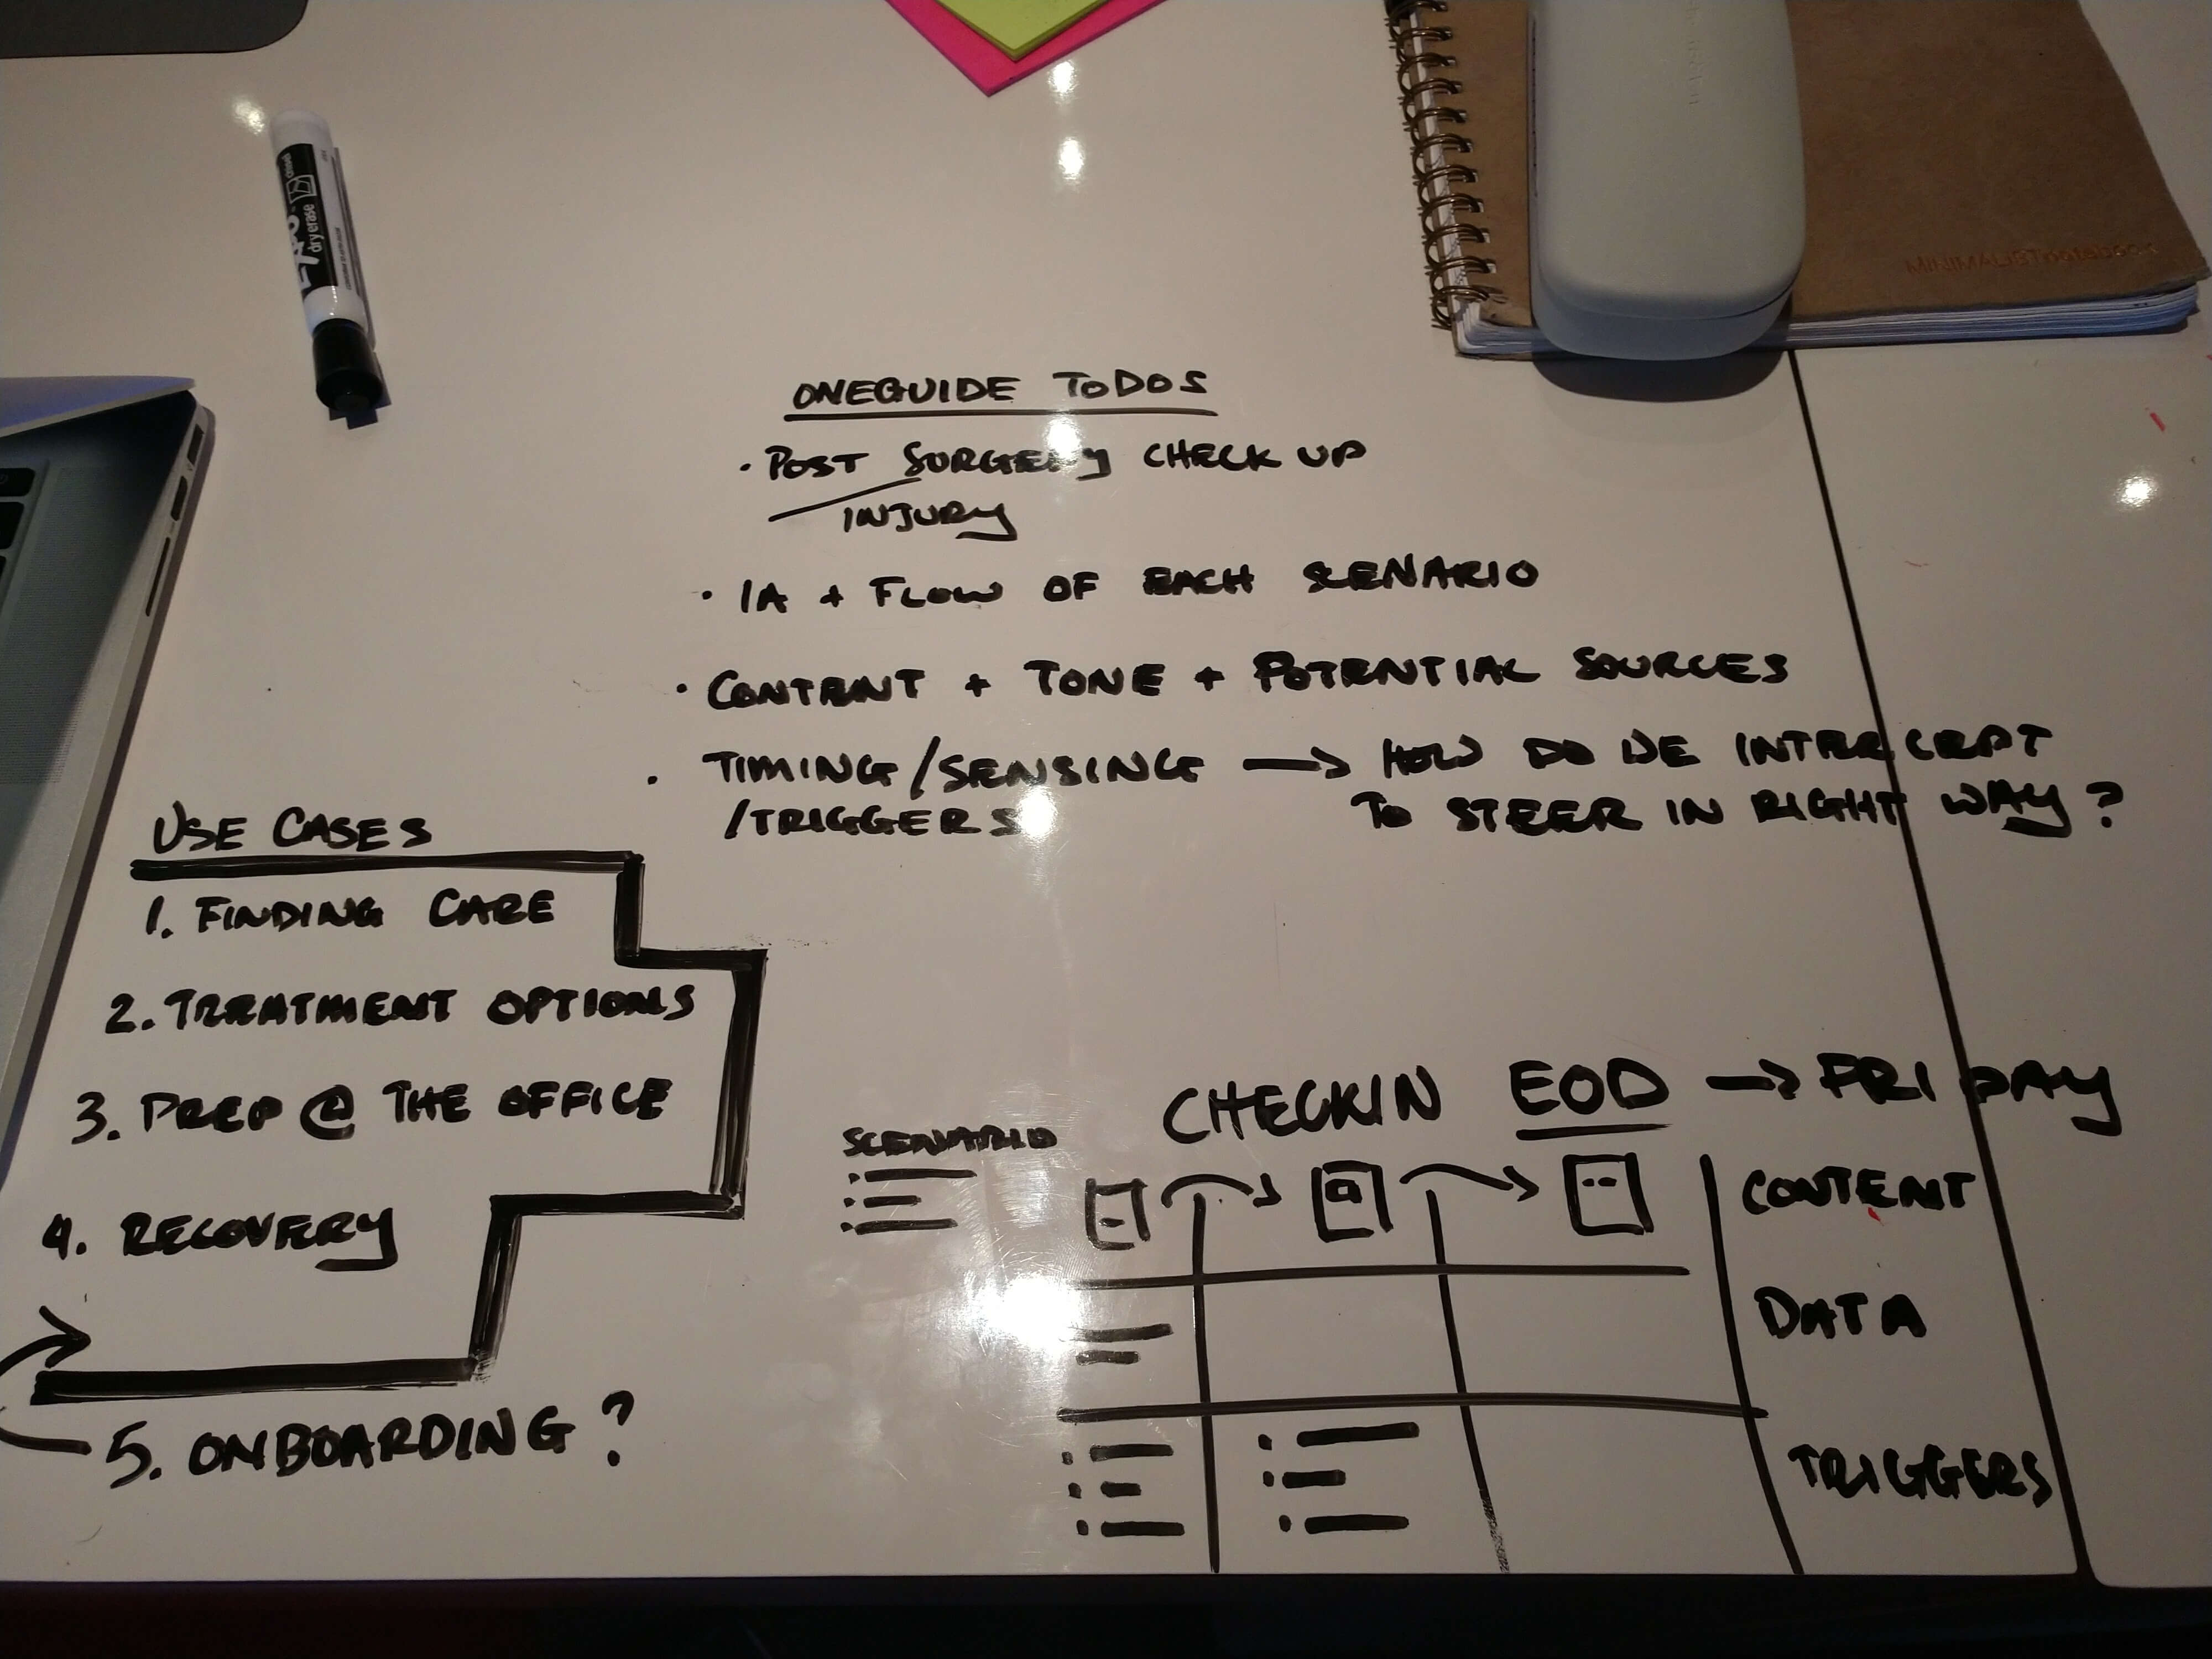 EXPO
dry erase
ONEGUIDE TODOS
• POST SURGERY CHECK UP
/ INJURY
• IA + FLOW OF EACH SCENARIO
• CONTENT + TONE + POTENTIAL SOURCES
• TIMING/SENSING → HOW DO WE INTERCEPT
/TRIGGERS TO STEER IN RIGHT WAY?
USE CASES
1. FINDING CARE
2. TREATMENT OPTIONS
3. PREP @ THE OFFICE
4. RECOVERY
5. ONBOARDING?
CHECKIN EOD → FRIDAY
SCENARIO
CONTENT
DATA
TRIGGERS